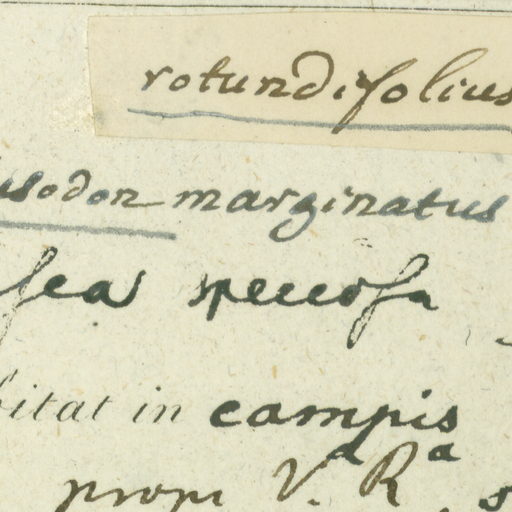 rotundifolius
usodon marginatus
sea speciosa
bitat in campis
prope V.d R.a s